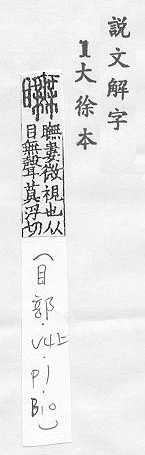 説文解字
1大徐本
瞴
瞴婁微視也从
目無聲莫浮切
(目部.V4上.P1.B10)